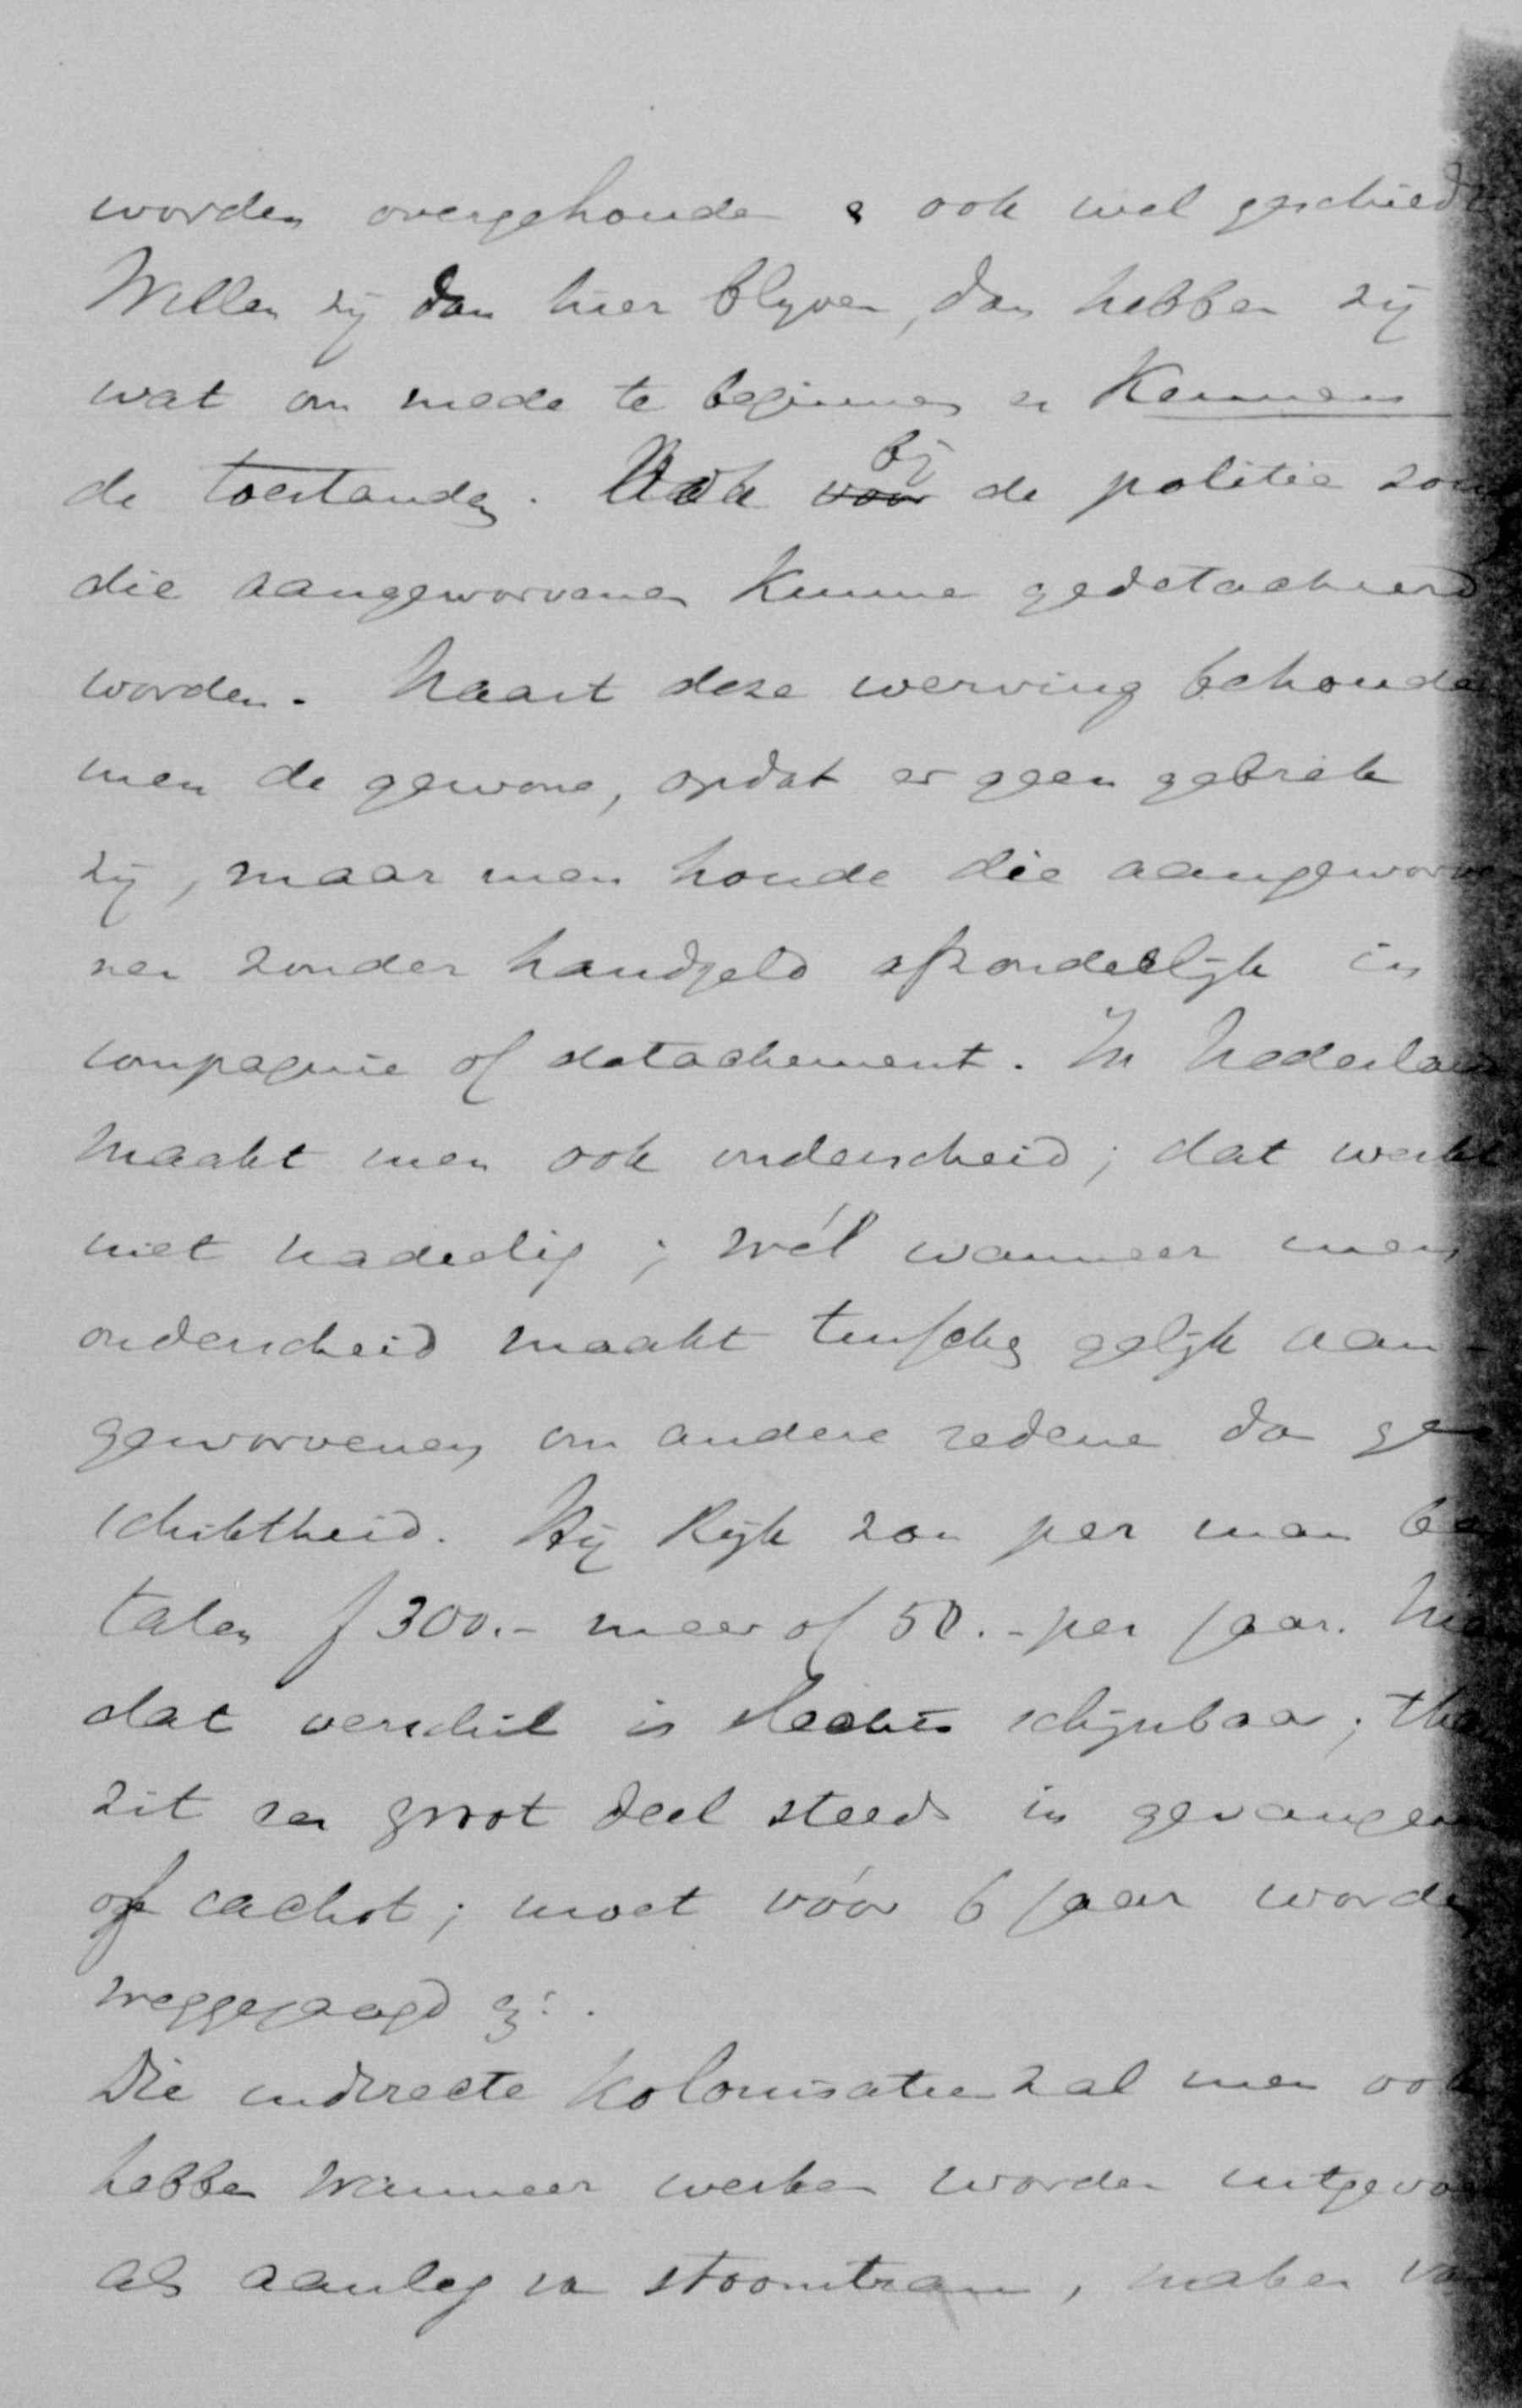 worden overgehouden & ook wel geschiedt
Willen zij dan hier blyven, dan hebben zij
wat om mede te beginnen en kennen
de toestanden. Ook voor bij de politie zou
die aangeworvenen kunne gedetacheerd
worden. Naast deze werving behoude
men de gewone, opdat er geen gebrek
zij, maar men houde die aangeworve
nen zonder handgeld afzonderlijk in
compagnie of detachement. In Nederland
maakt men ook onderscheid; dat werkt
niet nadeelig; wél wanneer men
onderscheid maakt tusschen gelijk aan-
geworvenen om andere redene dan ge
schiktheid. Het Rijk zou per man be
talen f 300.- meer of 50.- per jaar.
dat verschil is slechts schijnbaar;
zit een groot deel steeds in gevangen
of cachot; moet vóór 6 jaar worden
weggejaagd
Die indirecte kolonisatie zal men ook
hebben wanneer werken worden uitgevoe
als aanleg van stoomtram, maken van